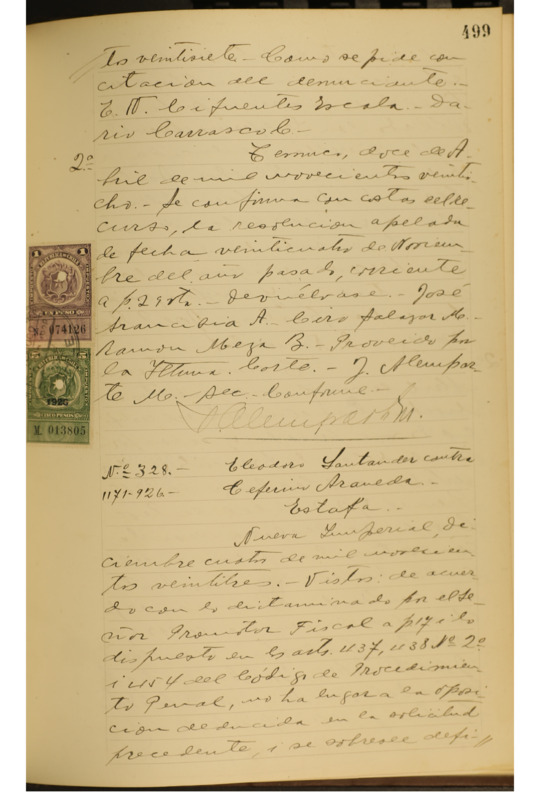 499
tos veintisiete.- Como se pide con
citacion del denunciante.-
E. N. Cifuentes Escala.- Da-
rio Carrasco C.-
2ª
Temuco, doce de A-
bril de mil novecientos veintio
cho.- Se confirma con costas del re-
curso, la resolucion apelada
de fecha veinticuatro de Noviem-
bre del año pasado, corriente
a p. 29 vta.- Devuélvase.- José
Francisco A. Ciro Salazar M.
Ramon Meza B.- Proveido por
la Iltma. Corte.- J. Alempar-
te M.- Sec.- Conforme.-
1
Nº 074126
1926
Nº 013805
Nº 328.-
1171-926-
Eleodoro Santander contra
Ceferino Araneda.-
Estafa.-
Nueva Imperial, Di-
ciembre cuatro de mil novecien-
tos veintitres.- Vistos: de acuer-
do con lo dictaminado por el Se-
ñor Promotor Fiscal a p 17 i lo
dispuesto en los arts. 437, 438 Nº 2º
i 454 del Código de Procedimien-
to Penal, no ha lugar a la oposi-
cion deducida en la solicitud
precedente, i se sobresee defi-